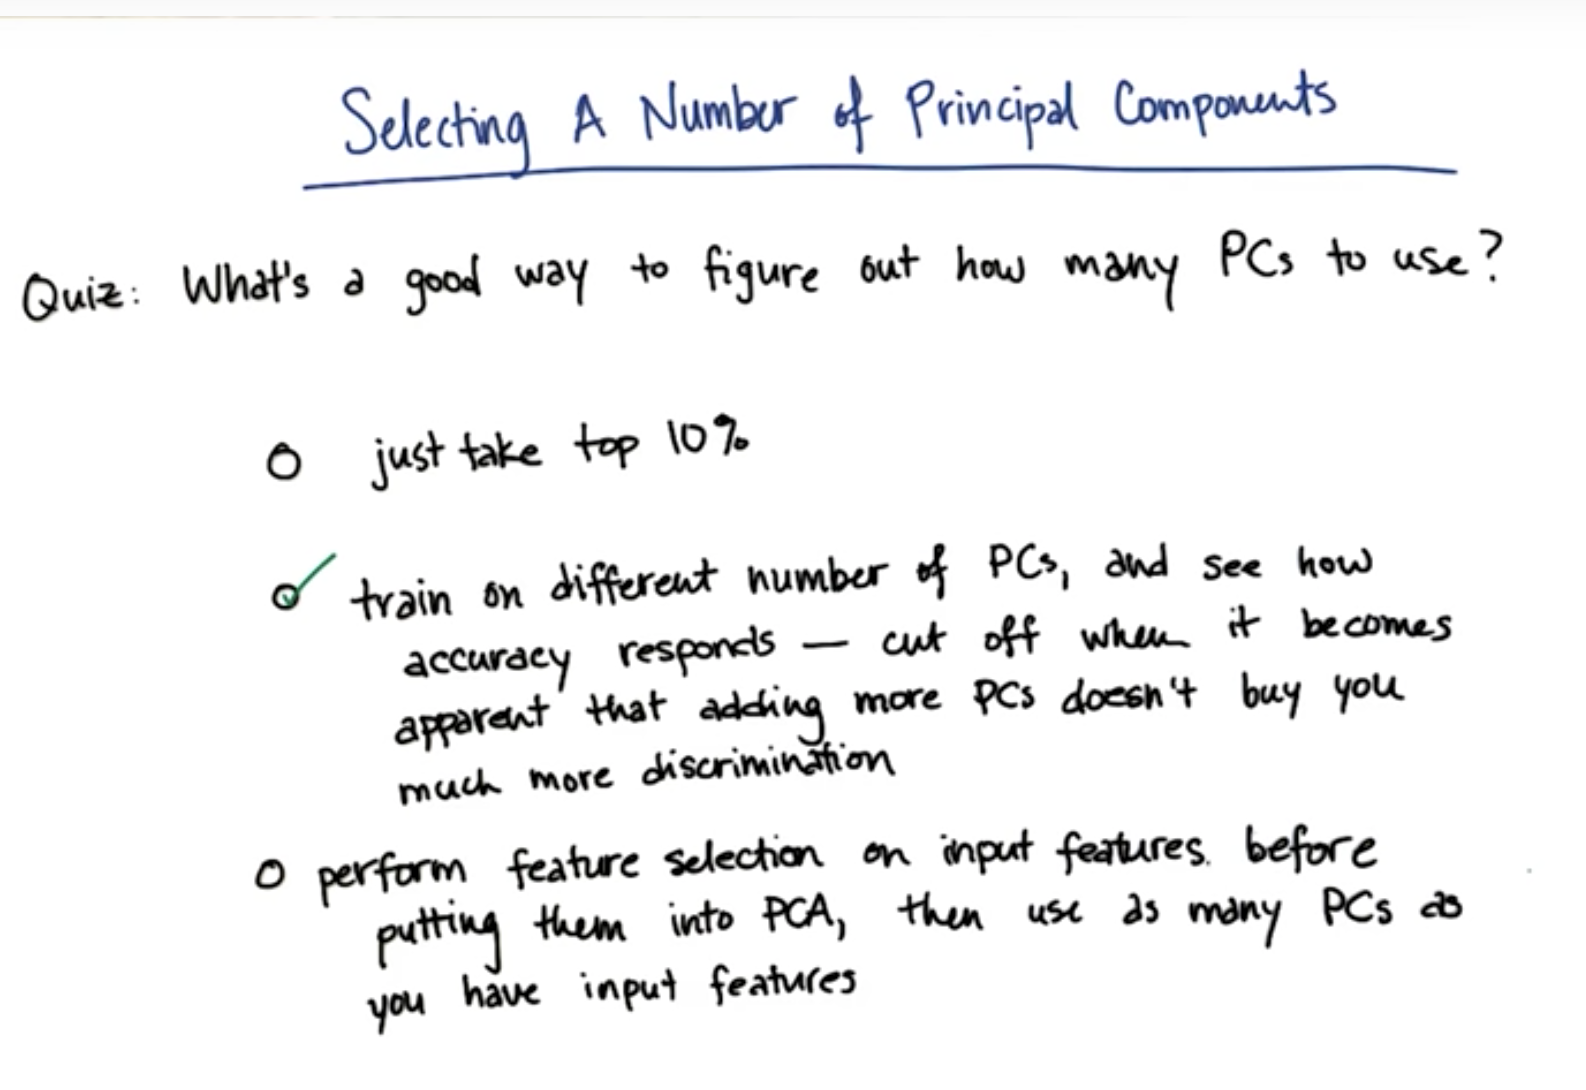 Selecting A Number of Principal Components
Quiz: What's a good way to figure out how many PCs to use?
just take top 10%
train on different number of PCs, and see how
accuracy responds — cut off when it becomes
apparent that adding more PCs doesn't buy you
much more discrimination
perform feature selection on input features. before
putting them into PCA, then use as many PCs as
you have input features